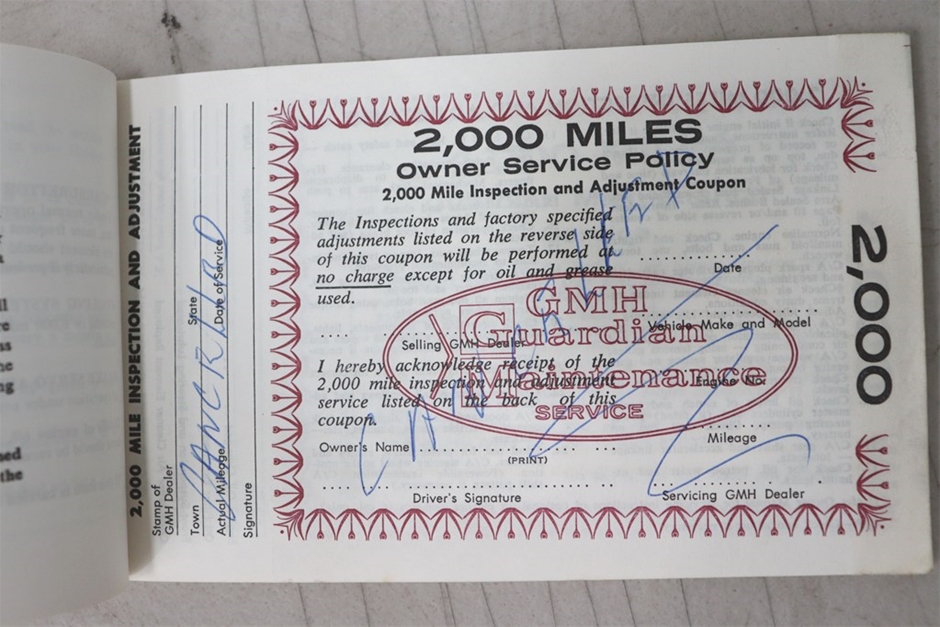 2,000 MILE INSPECTION AND ADJUSTMENT
Stamp of
GMH Dealer
Town
State
Actual Mileage
Date of Service
CANCELLED
Signature
2,000 MILES
Owner Service Policy
2,000 Mile Inspection and Adjustment Coupon
The Inspections and factory specified
adjustments listed on the reverse side
of this coupon will be performed at
no charge except for oil and grease
used.
Date
Selling GMH Dealer
Vehicle Make and Model
GMH
Guardian
Maintenance
SERVICE
I hereby acknowledge receipt of the
2,000 mile inspection and adjustment
service listed on the back of this
coupon.
Engine No.
Owner's Name
(PRINT)
Mileage
Driver's Signature
Servicing GMH Dealer
CANCELLED
2,000